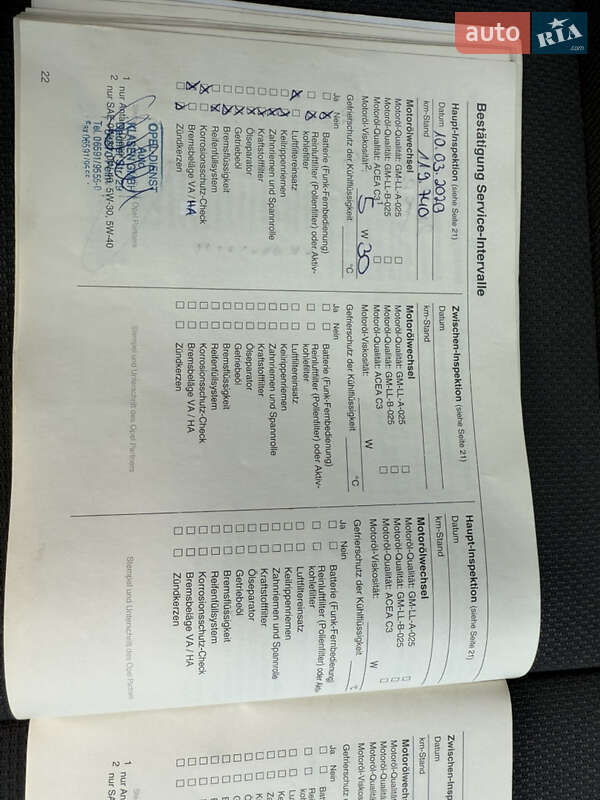 auto RIA.com
Bestätigung Service-Intervalle
Haupt-Inspektion (siehe Seite 21)
Datum 10.03.2020
km-Stand 119.740
Motorölwechsel
Motoröl-Qualität: GM-LL-A-025
Motoröl-Qualität: GM-LL-B-025
Motoröl-Qualität: ACEA C3¹
Motoröl-Viskosität²: 5 W 30
Gefrierschutz der Kühlflüssigkeit °C
Ja Nein
Batterie (Funk-Fernbedienung)
Reinluftfilter (Pollenfilter) oder Aktiv-
kohlefilter
Luftfiltereinsatz
Keilrippenriemen
Zahnriemen und Spannrolle
Kraftstofffilter
Ölseparator
Getriebeöl
Bremsflüssigkeit
Reifenfüllsystem
Korrosionsschutz-Check
Bremsbeläge VA / HA
Zündkerzen
OPEL-DIENST
1 nur
2 nur SAE 5W-30, 5W-40
22
Zwischen-Inspektion (siehe Seite 21)
Datum
km-Stand
Motorölwechsel
Motoröl-Qualität: GM-LL-A-025
Motoröl-Qualität: GM-LL-B-025
Motoröl-Qualität: ACEA C3
Motoröl-Viskosität: W
Gefrierschutz der Kühlflüssigkeit °C
Ja Nein
Batterie (Funk-Fernbedienung)
Reinluftfilter (Pollenfilter) oder Aktiv-
kohlefilter
Luftfiltereinsatz
Keilrippenriemen
Zahnriemen und Spannrolle
Kraftstofffilter
Ölseparator
Getriebeöl
Bremsflüssigkeit
Reifenfüllsystem
Korrosionsschutz-Check
Bremsbeläge VA / HA
Zündkerzen
Stempel und Unterschrift des Opel Partners
Haupt-Inspektion (siehe Seite 21)
Datum
km-Stand
Motorölwechsel
Motoröl-Qualität: GM-LL-A-025
Motoröl-Qualität: GM-LL-B-025
Motoröl-Qualität: ACEA C3
Motoröl-Viskosität: W
Gefrierschutz der Kühlflüssigkeit
Ja Nein
Batterie (Funk-Fernbedienung)
Reinluftfilter (Pollenfilter) oder Aktiv
kohlefilter
Luftfiltereinsatz
Keilrippenriemen
Zahnriemen und Spannrolle
Kraftstofffilter
Ölseparator
Getriebeöl
Bremsflüssigkeit
Reifenfüllsystem
Korrosionsschutz-Check
Bremsbeläge VA / HA
Zündkerzen
Stempel und Unterschrift des Opel Partners
Zwischen-Inspektion
Datum
km-Stand
Motorölwechsel
Ja Nein
1 nur
2 nur